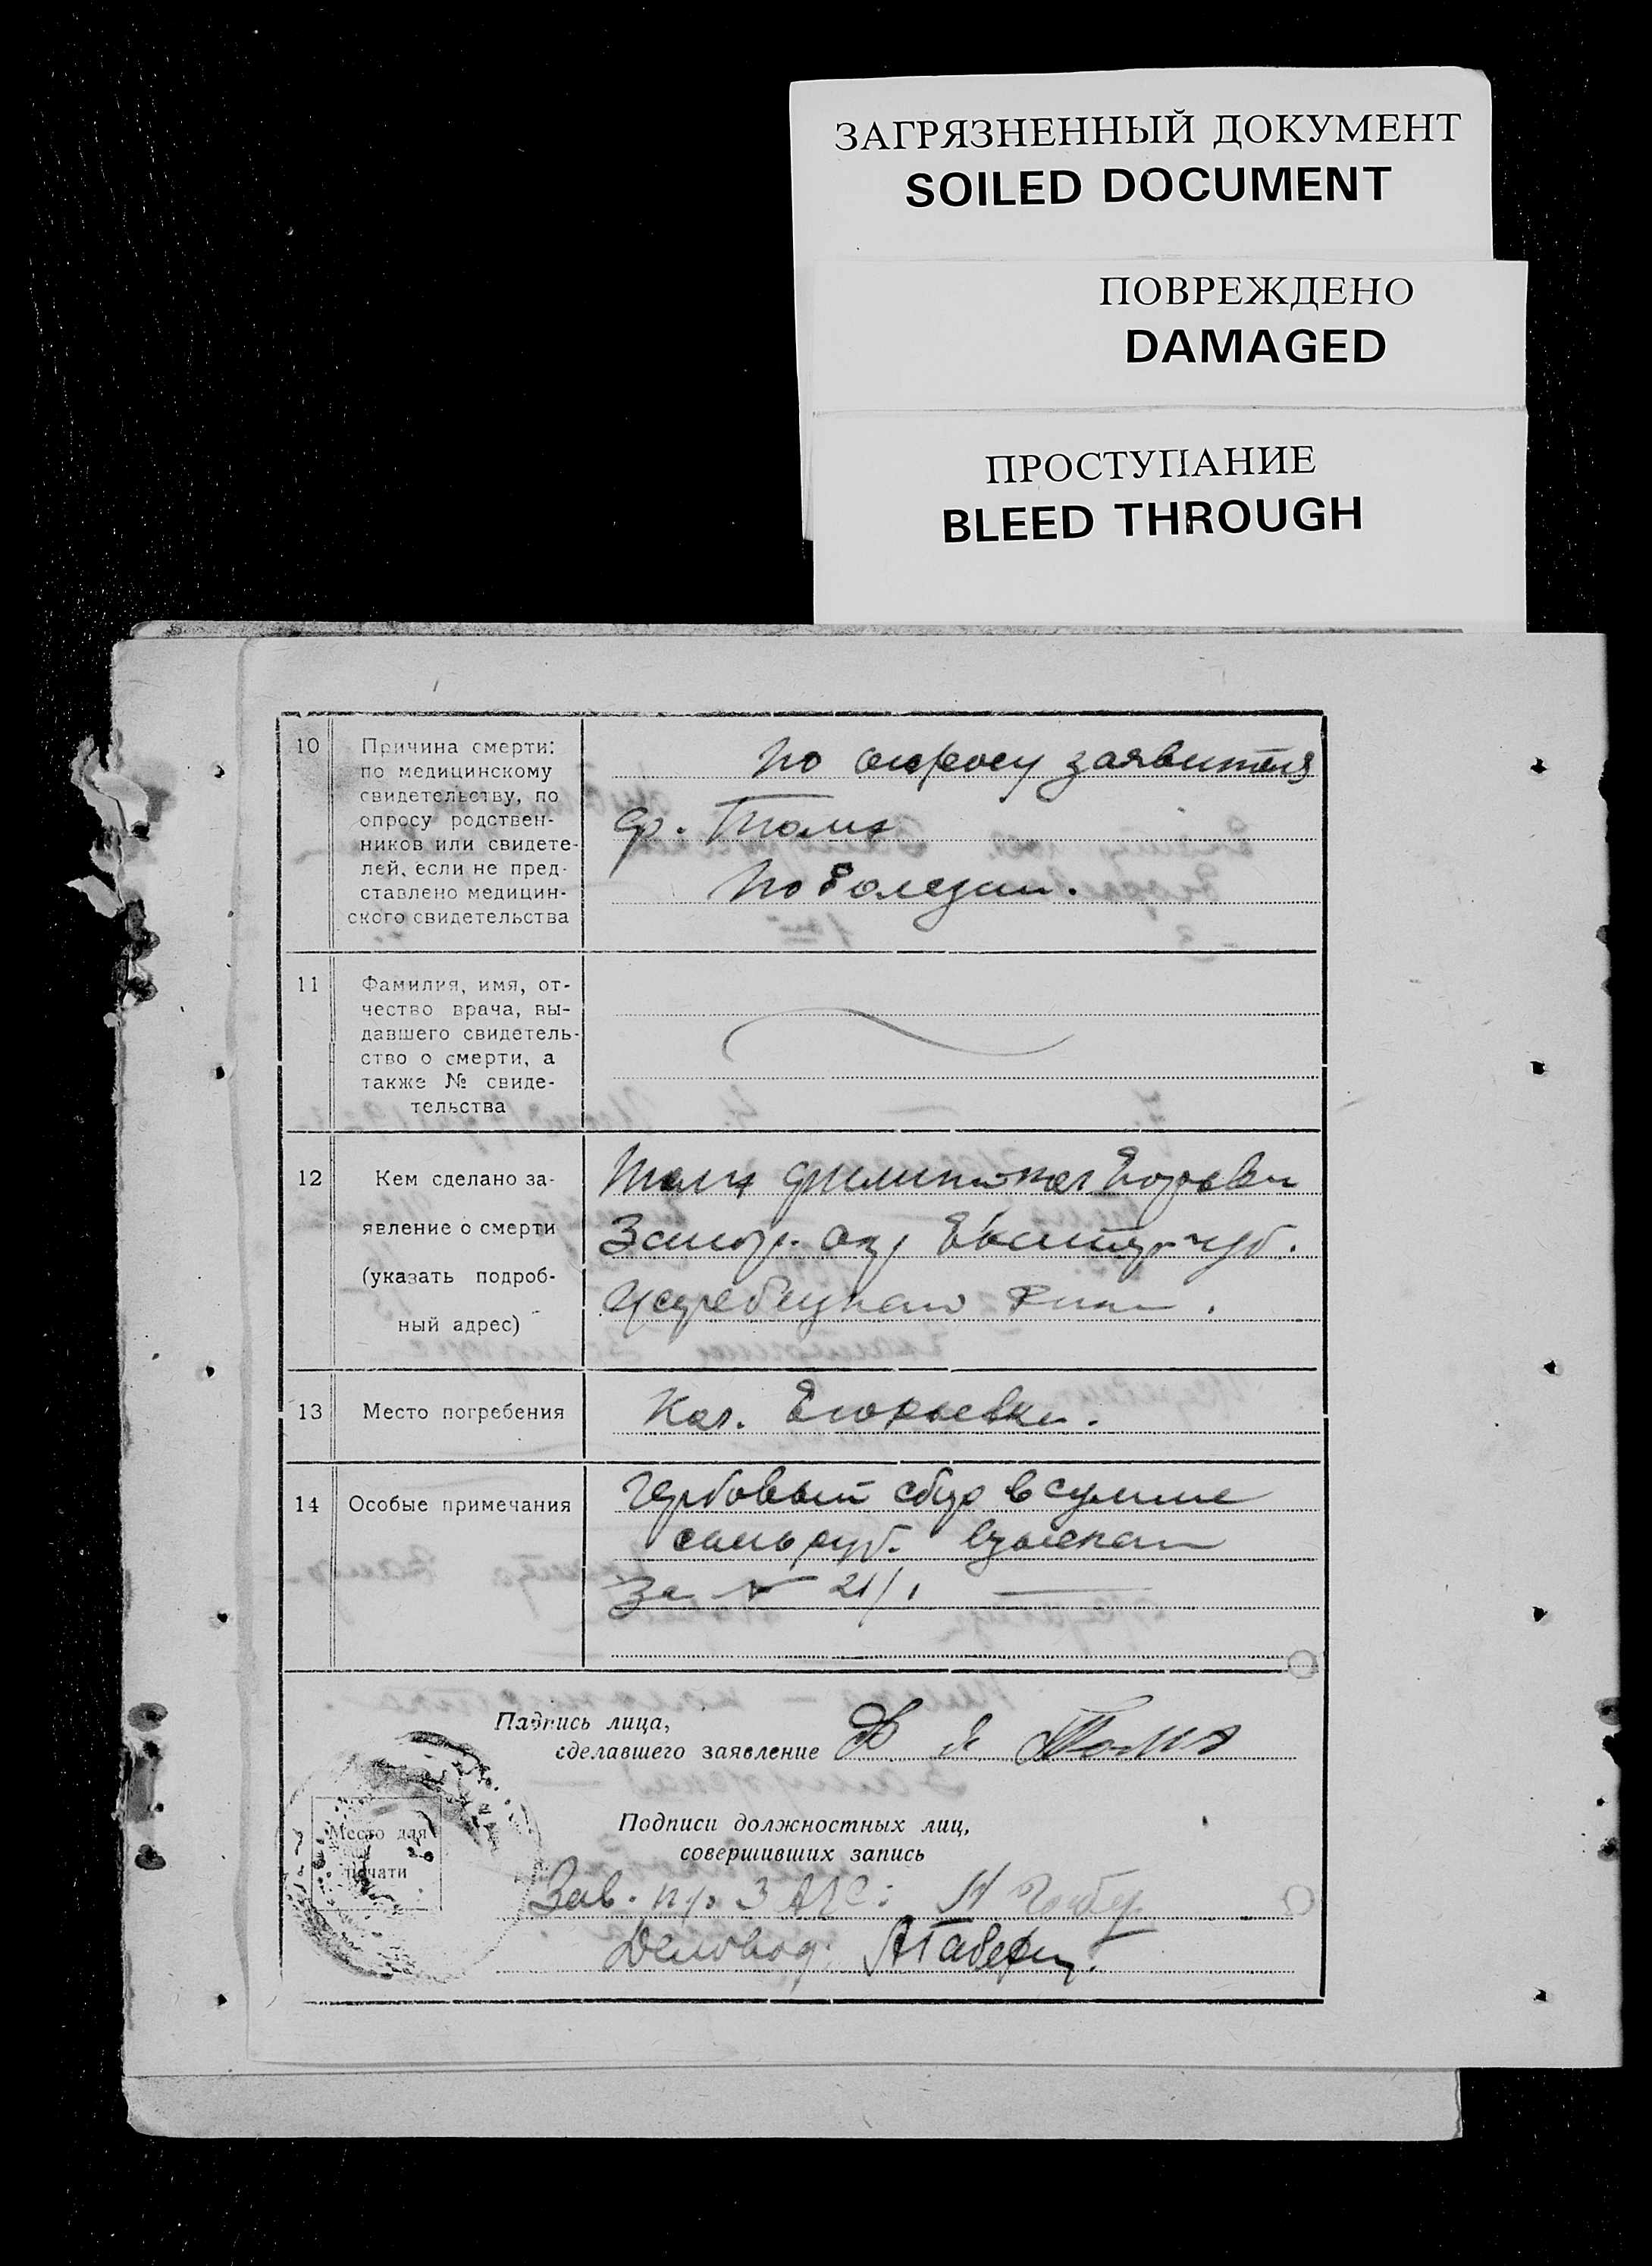 ЗАГРЯЗНЕННЫЙ ДОКУМЕНТ
SOILED DOCUMENT
ПОВРЕЖДЕНО
DAMAGED
ПРОСТУПАНИЕ
BLEED THROUGH
10
Причина смерти:
по медицинскому
свидетельству, по
опросу родствен-
ников или свидете-
лей, если не пред-
ставлено медицин-
ского свидетельства
по опросу заявителя
гр. Томя
По болезни.
11
Фамилия, имя, от-
чество врача, вы-
давшего свидетель-
ство о смерти, а
также № свиде-
тельства
12
Кем сделано за-
явление о смерти
(указать подроб-
ный адрес)
Запор. губ.
13
Место погребения
Кол. Егорьевка.
14
Особые примечания
Гербовый сбор в сумме
руб. взыскан
За № 21/1
Подпись лица,
сделавшего заявление
Подписи должностных лиц,
совершивших запись
Место для
печати
Зав. п/о ЗАГС:
Деловод.